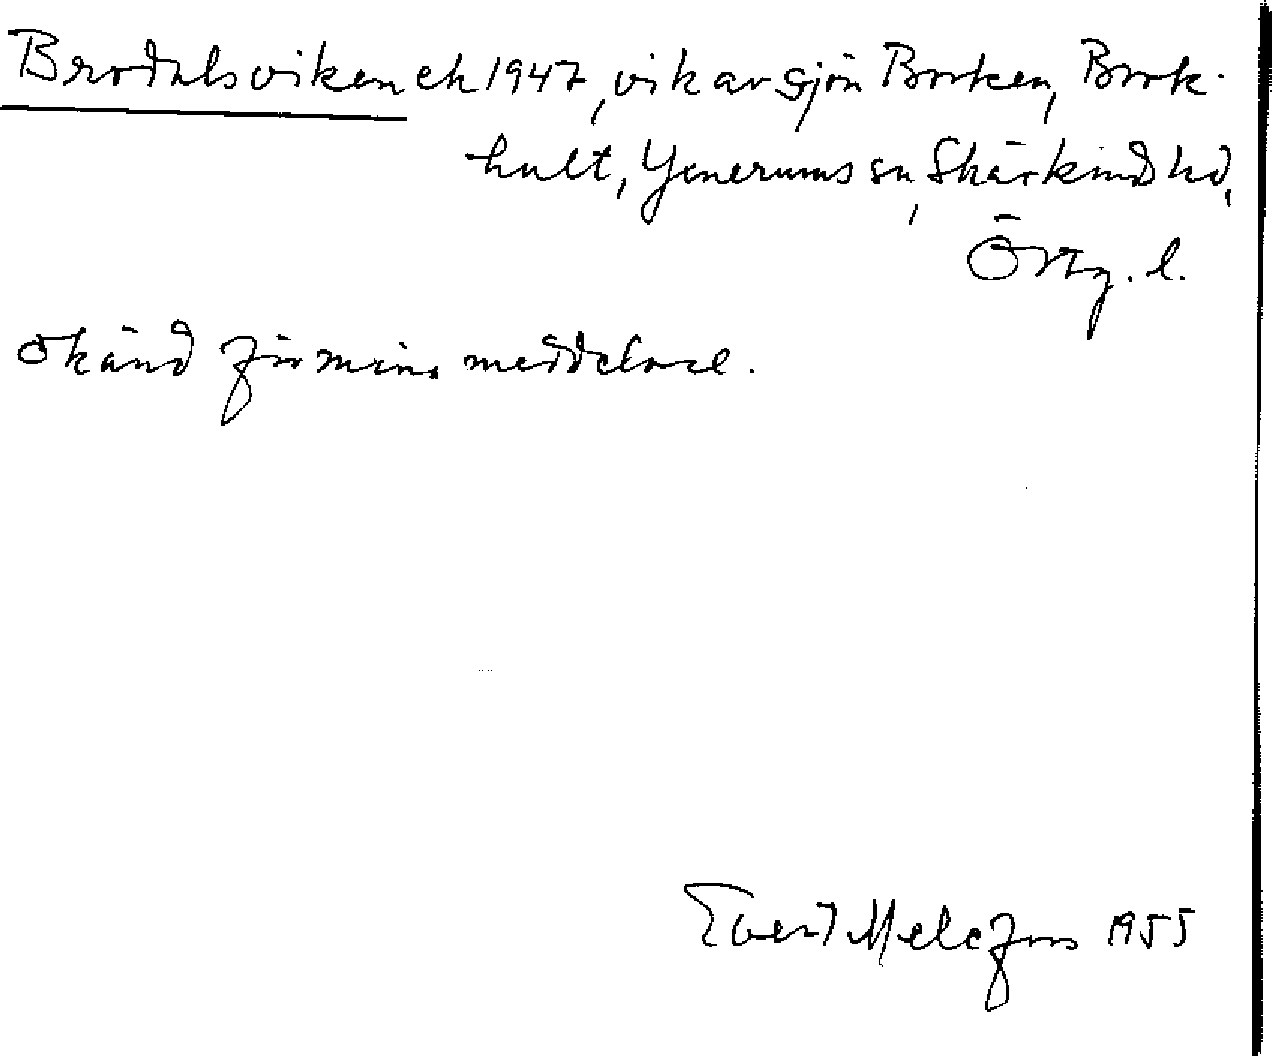 Brodalsviken ek 1947, vik av sjön Borken, Brok-
hult, Yxnerums sn, Skärkind hd,
Östg. l.
Okänd för mina meddelare.
Evert Melefors 1955